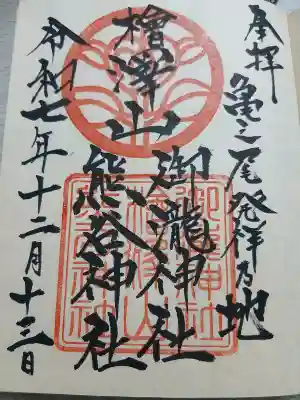 奉拝
亀之尾発祥乃地
檜澤山
御瀧神社
熊谷神社
令和七年十二月十三日